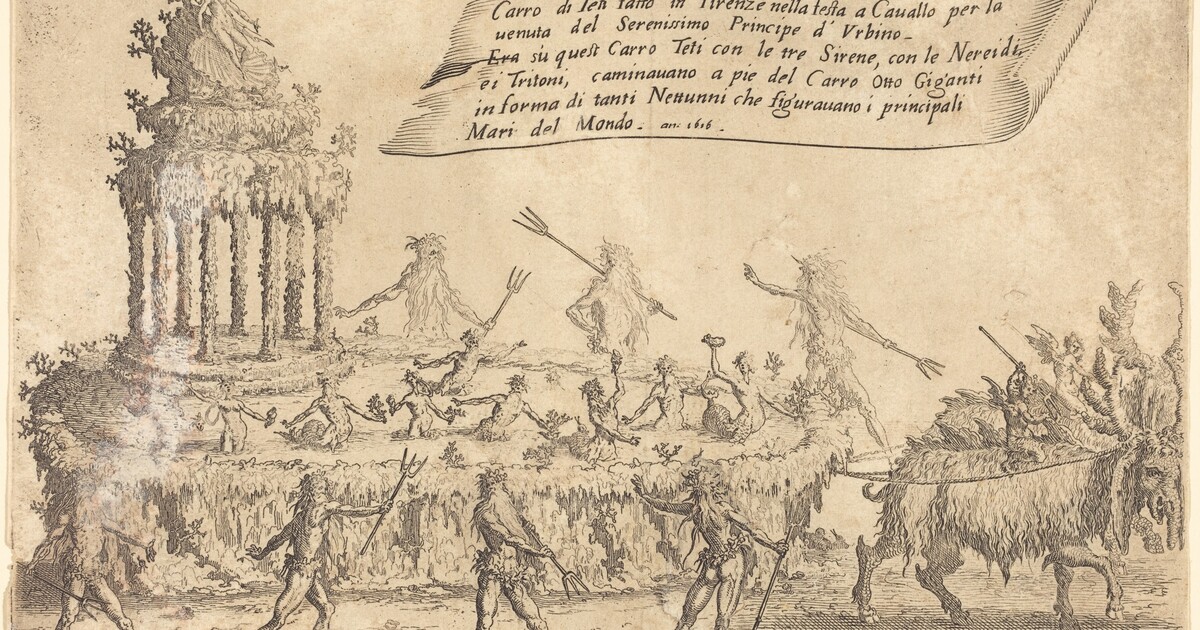 Carro di Teti fatto in Firenze nella festa a Cauallo per la
uenuta del Serenissimo Principe d' Vrbino_
Era sù quest Carro Teti con le tre Sirene, con le Nereidi,
e i Tritoni, caminauano a pie del Carro Otto Giganti
in forma di tanti Nettunni che figurauano i principali
Mari del Mondo_ an: 1616_